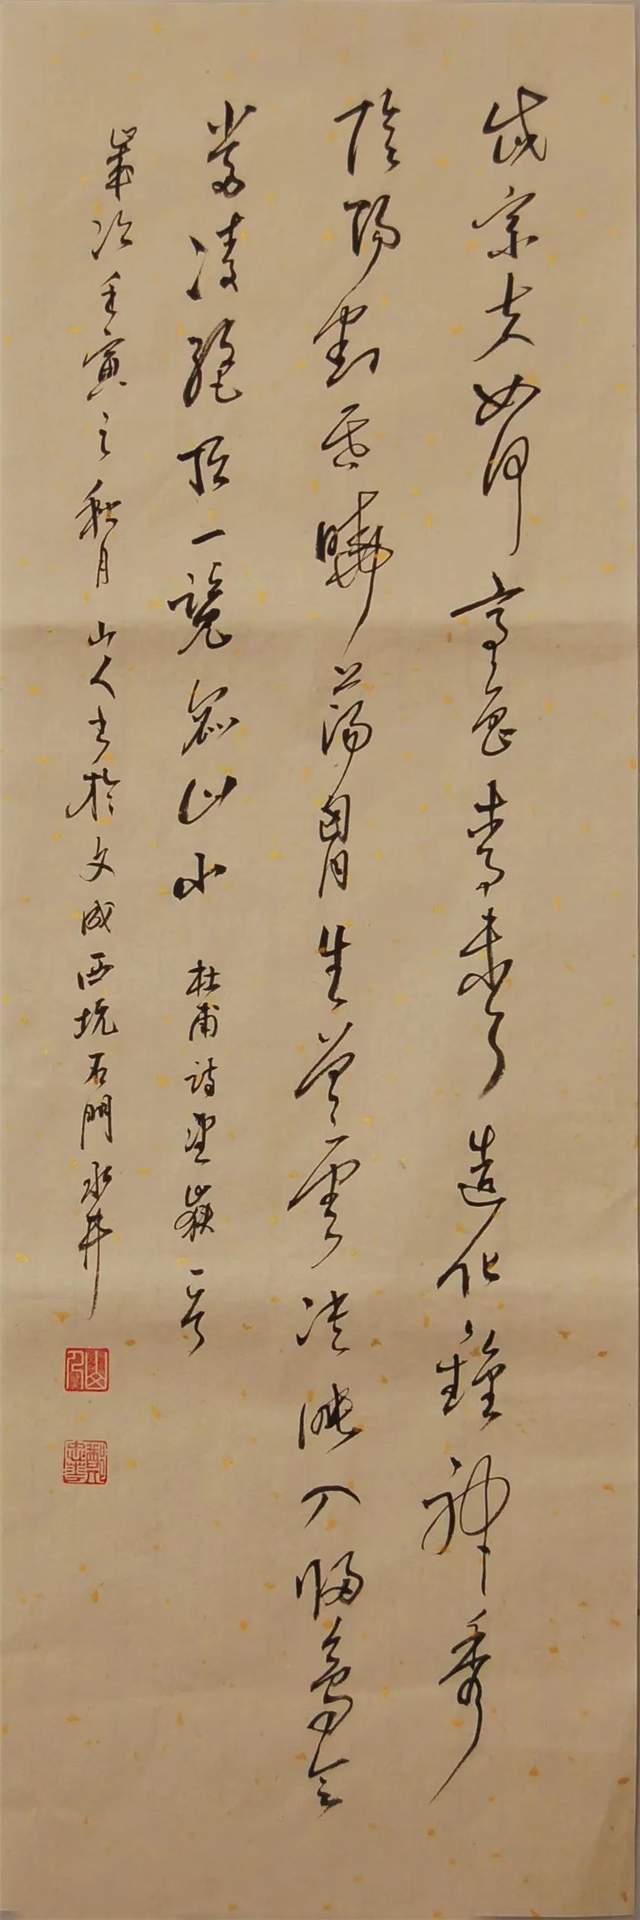 岱宗夫如何齊魯青未了造化鍾神秀
陰陽割昏曉蕩胷生曾雲决眥入歸鳥會
當凌絕頂一覽眾山小 杜甫詩望嶽一首
歲次壬寅之秋月山人書於文成西坑石門水井